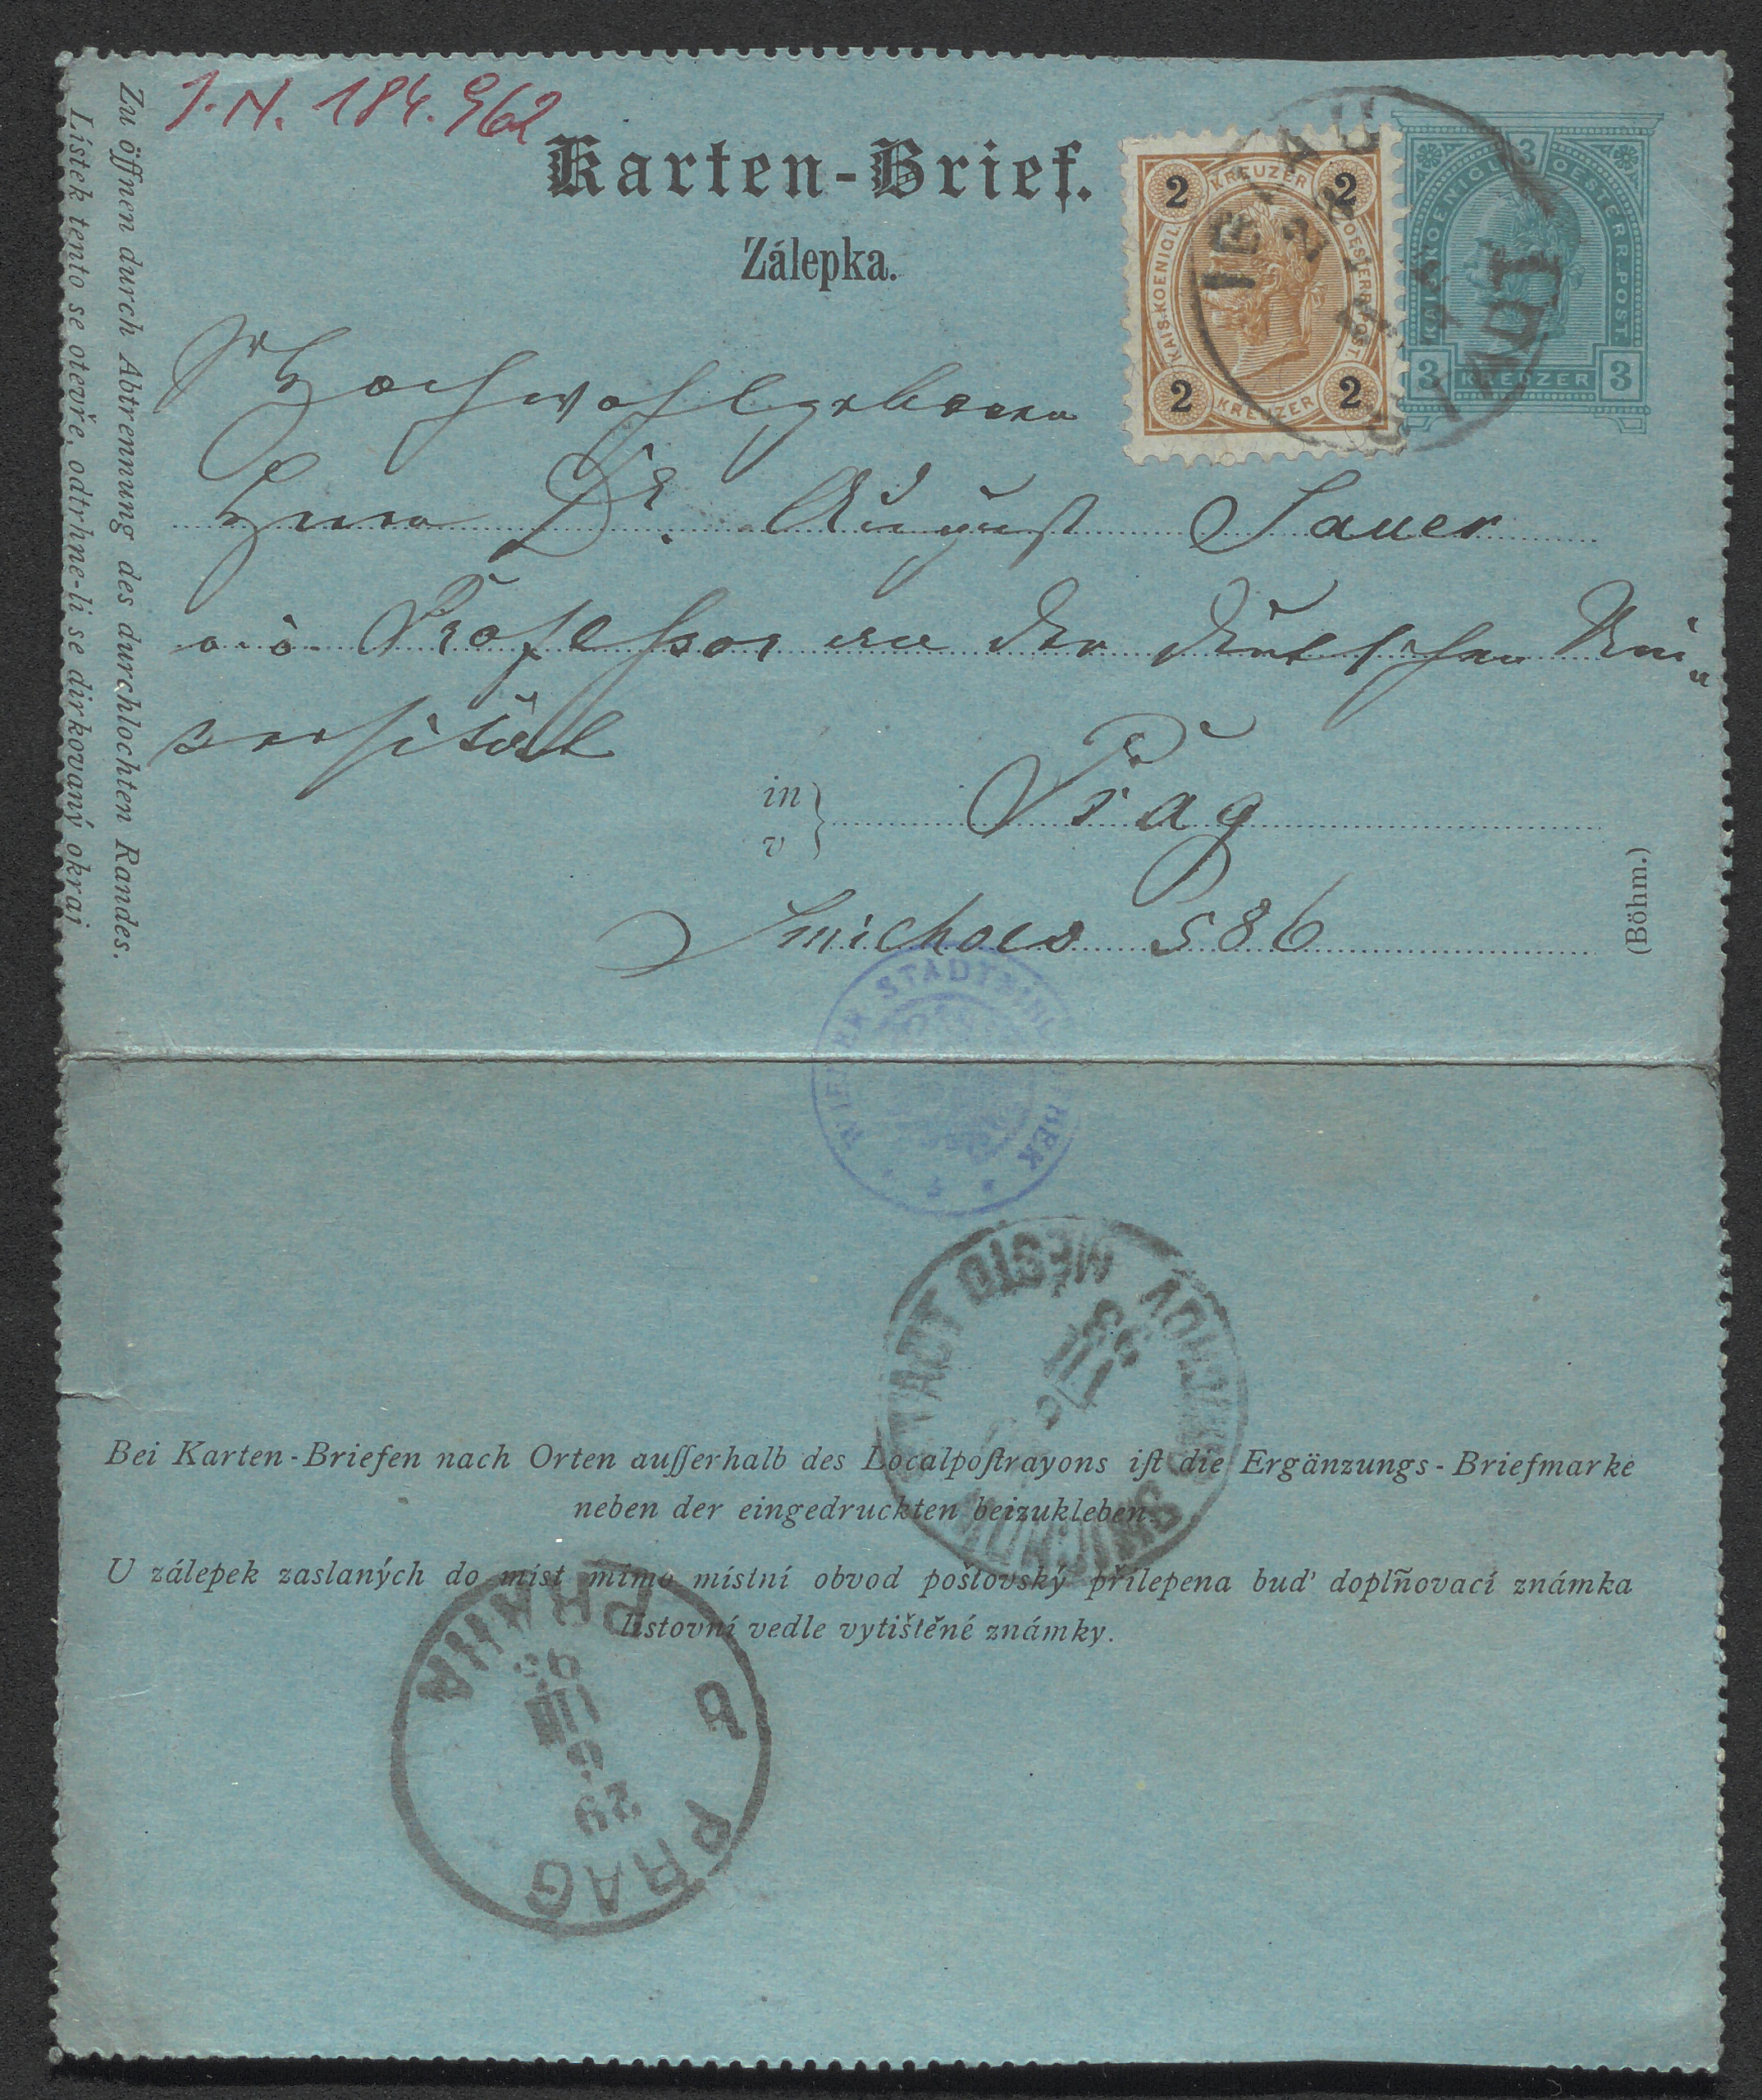 J.N. 184.962
Karten-Brief.
Zálepka.
Zu öffnen durch Abtrennung des durchlochten Randes.
Lístek tento se otevře, odtrhne-li se dirkovaný okraj
2 KREUZER 2
KAIS. KOENIGL. OESTERR. POST
2 KREUZER 2
3
KAIS. KOENIGL. OESTERR. POST.
3 KREUZER 3
STADT
Sr Hochwohlgeboren
Herrn Dr. August Sauer
o. ö. Professor an der deutschen Uni
versität
in
v
Prag
Smichow 586
(Böhm.)
WIENER STADTBIBLIOTHEK
SMICHOV STADT
SMÍCHOV MĚSTO
Bei Karten-Briefen nach Orten auſſerhalb des Localpoſtrayons iſt die Ergänzungs-Briefmarke
neben der eingedruckten beizukleben.
U zálepek zaslaných do míst mimo místní obvod poštovský přilepena buď doplňovací známka
listovní vedle vytištěné známky.
PRAG
PRAHA
29